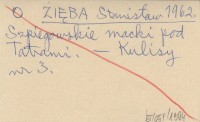 O ZIĘBA Stanisław 1962.
Szpiegowskie macki pod
Tatrami. — Kulisy
nr 3.